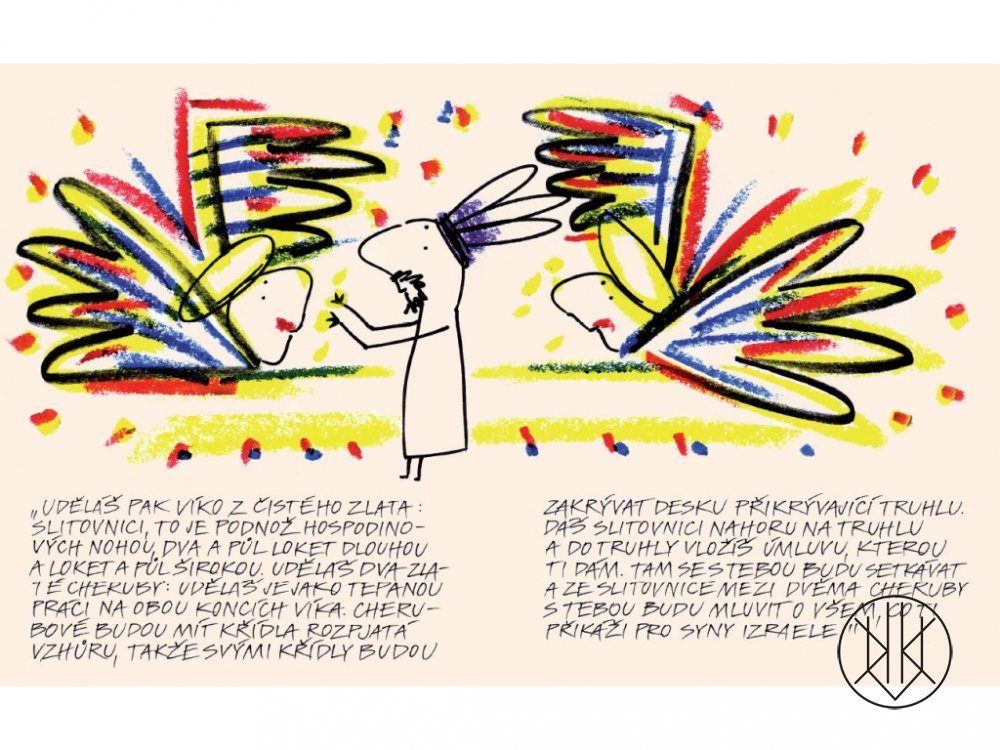 „UDĚLÁŠ PAK VÍKO Z ČISTÉHO ZLATA:
SLITOVNICI, TO JE PODNOŽ HOSPODINO-
VÝCH NOHOU, DVA A PŮL LOKET DLOUHOU
A LOKET A PŮL ŠIROKOU. UDĚLÁŠ DVA ZLA-
TÉ CHERUBY: UDĚLÁŠ JE JAKO TEPANOU
PRÁCI NA OBOU KONCÍCH VÍKA. CHERU-
BOVÉ BUDOU MÍT KŘÍDLA ROZPJATÁ
VZHŮRU, TAKŽE SVÝMI KŘÍDLY BUDOU
ZAKRÝVAT DESKU PŘIKRÝVAJÍCÍ TRUHLU.
DÁŠ SLITOVNICI NAHORU NA TRUHLU
A DO TRUHLY VLOŽÍŠ ÚMLUVU, KTEROU
TI DÁM. TAM SE S TEBOU BUDU SETKÁVAT
A ZE SLITOVNICE MEZI DVĚMA CHERUBY
S TEBOU BUDU MLUVIT O VŠEM, CO TI
PŘIKÁŽI PRO SYNY IZRAELE.“